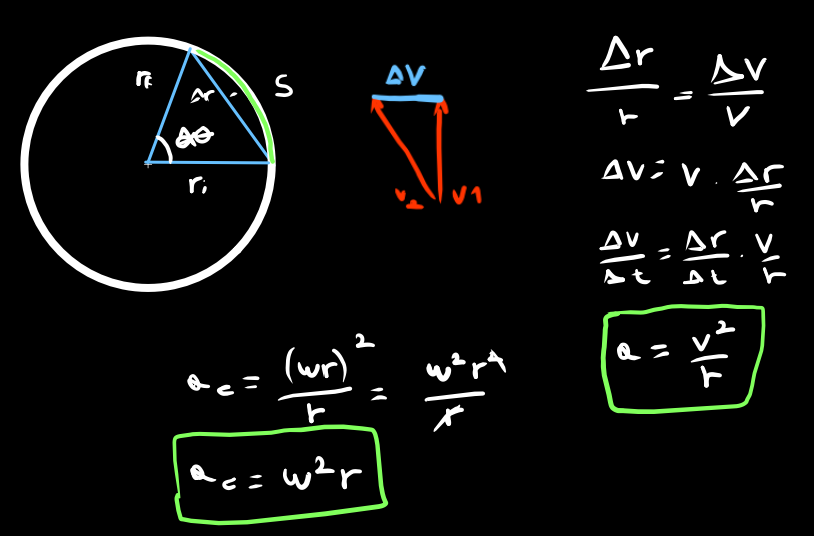 r_f
Δr
S
Δθ
r_i
ΔV
v_2
V1
Δr/r = ΔV/V
ΔV = V · Δr/r
ΔV/Δt = Δr/Δt · V/r
a = v²/r
a_c = (wr)²/r = w²r²/r
a_c = w²r